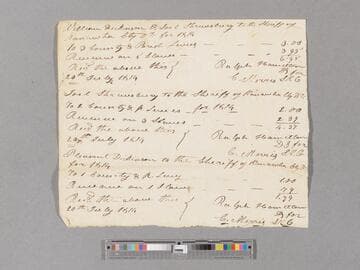 William Dickinson & Joel Shrewsbury to the Sheriff of
Kanawha Cty Dr. for 1814
To 3 County & Parish Levies — 3.00
Revenue on 5 Slaves — 3.95
6.95
Recd the above this Ralph Hamilton
20th July 1814 D S for
C Morris S K C
Joel Shrewsbury to the Sheriff of Kanawha Cty Dr
To 2 County & P Levies — for 1814 — 2.00
Revenue on 3 Slaves — 2.37
4.37
Recd the above this Ralph Hamilton
20th July 1814 D S for
C Morris S K C
Pleasant Dickinson to the Sheriff of Kanawha Cty Dr
for 1814
To 1 County & P Levy — 1.00
Revenue on 1 Slave — .79
1.79
Recd the above this Ralph Hamilton
20th July 1814 D S for
C Morris S K C